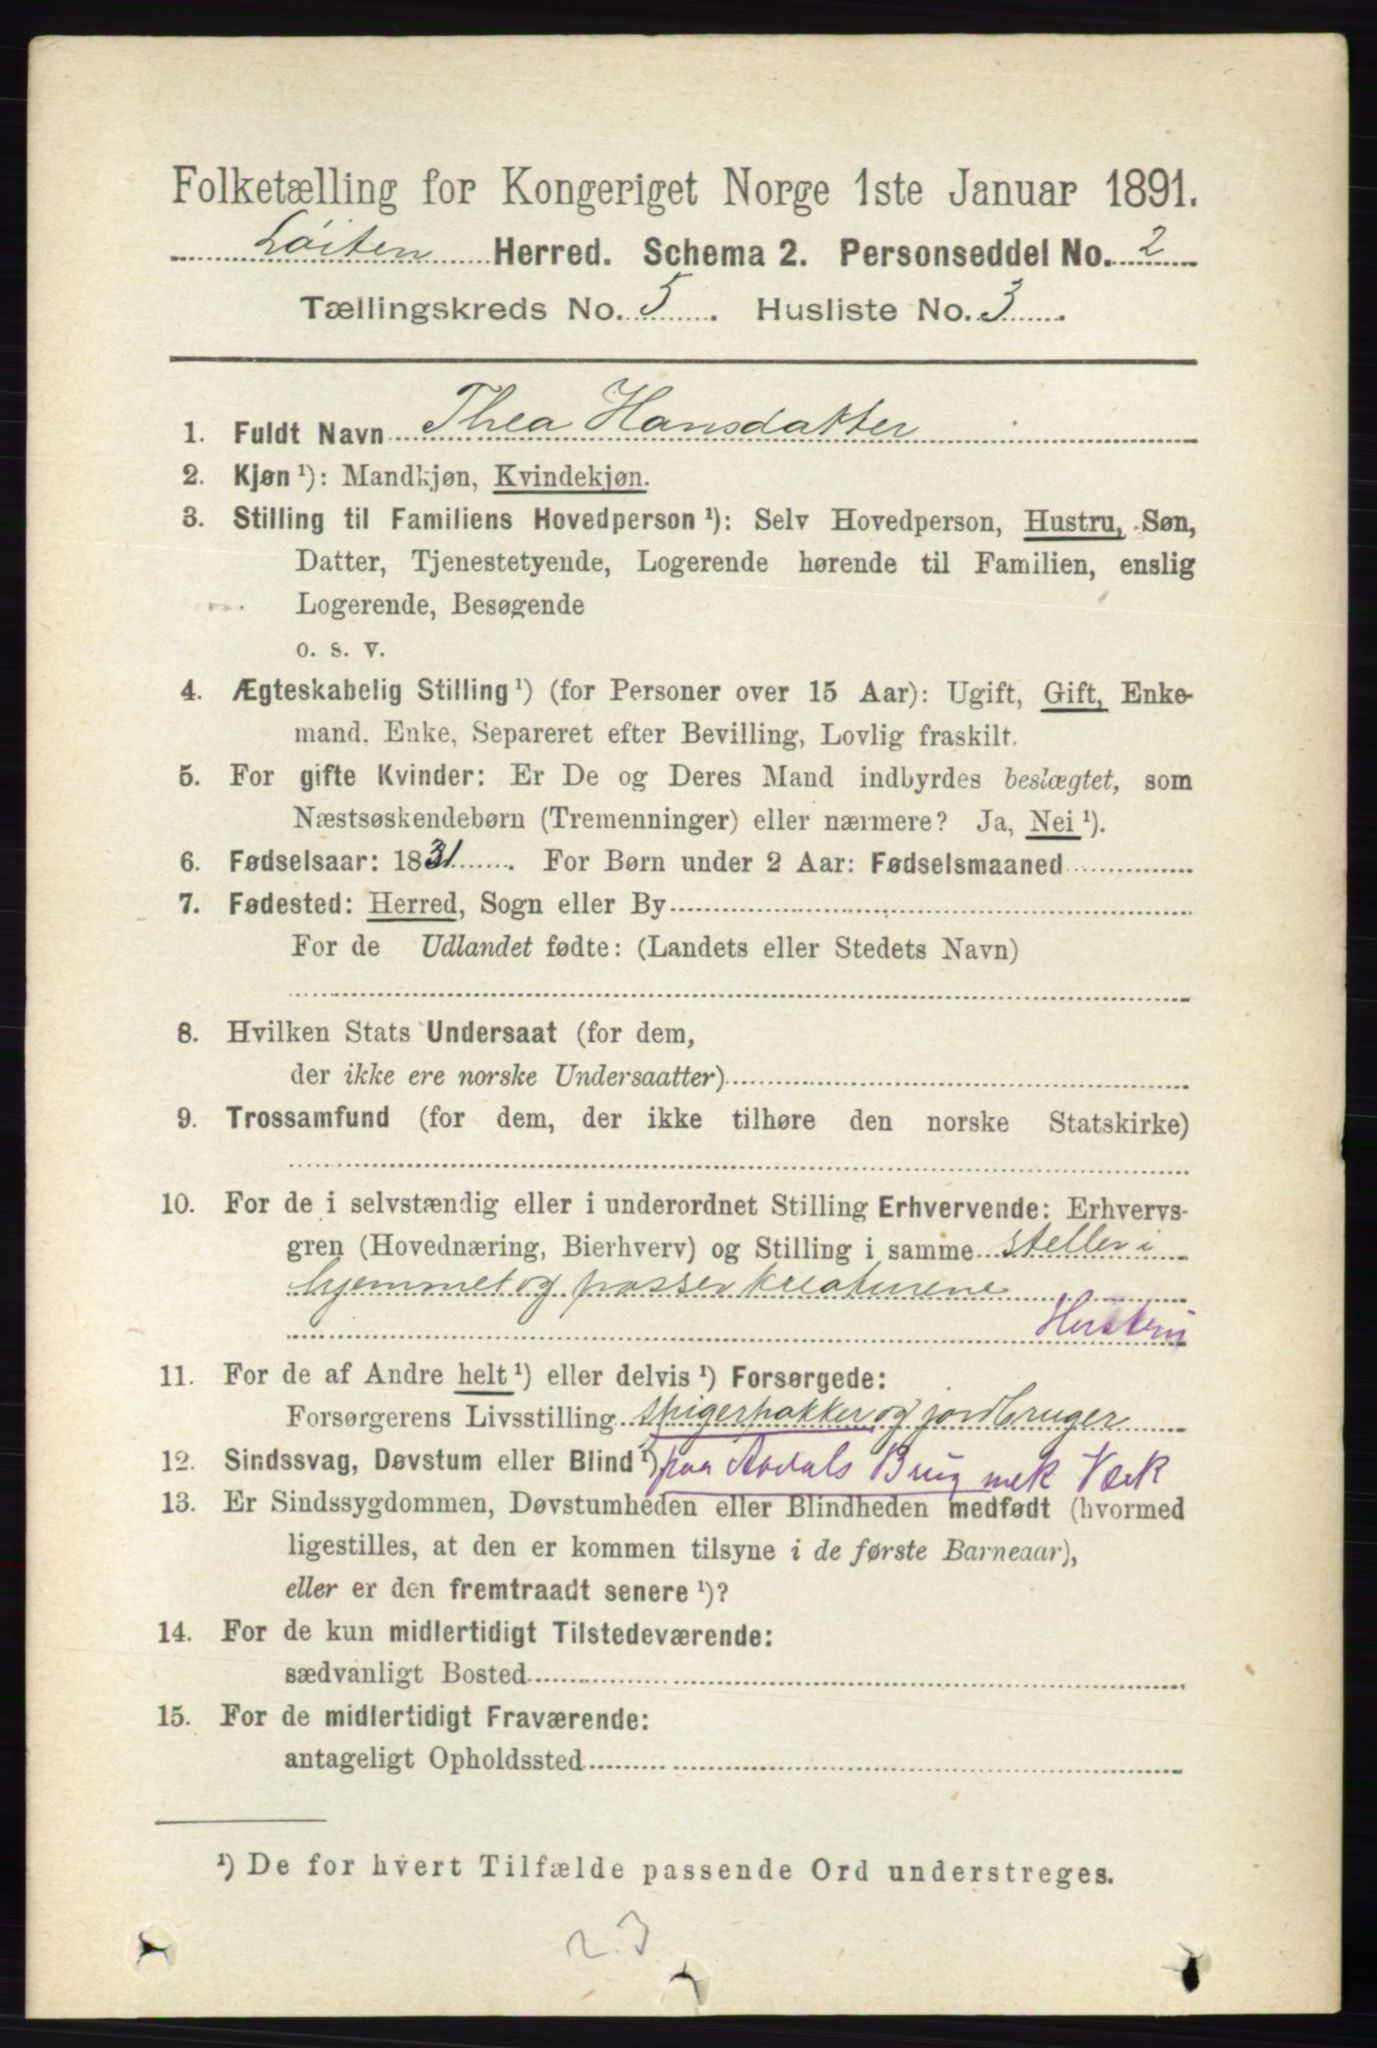 Folketælling for Kongeriget Norge 1ste Januar 1891.
Løiten Herred. Schema 2. Personseddel No. 2
Tællingskreds No. 5. Husliste No. 3.
1. Fuldt Navn Thea Hansdatter
2. Kjøn ¹): Mandkjøn, Kvindekjøn.
3. Stilling til Familiens Hovedperson ¹): Selv Hovedperson, Hustru, Søn,
Datter, Tjenestetyende, Logerende hørende til Familien, enslig
Logerende, Besøgende
o. s. v.
4. Ægteskabelig Stilling ¹) (for Personer over 15 Aar): Ugift, Gift, Enke-
mand, Enke, Separeret efter Bevilling, Lovlig fraskilt.
5. For gifte Kvinder: Er De og Deres Mand indbyrdes beslægtet, som
Næstsøskendebørn (Tremenninger) eller nærmere? Ja, Nei ¹).
6. Fødselsaar: 1831. For Børn under 2 Aar: Fødselsmaaned
7. Fødested: Herred, Sogn eller By
For de Udlandet fødte: (Landets eller Stedets Navn)
8. Hvilken Stats Undersaat (for dem,
der ikke ere norske Undersaatter)
9. Trossamfund (for dem, der ikke tilhøre den norske Statskirke)
10. For de i selvstændig eller i underordnet Stilling Erhvervende: Erhvervs-
gren (Hovednæring, Bierhverv) og Stilling i samme steller i
hjemmet og passer kreaturene
Hustru
11. For de af Andre helt ¹) eller delvis ¹) Forsørgede:
Forsørgerens Livsstilling spigerpakker og jordbruger
12. Sindssvag, Døvstum eller Blind ¹) paa Aadals Brug mek Værk
13. Er Sindssygdommen, Døvstumheden eller Blindheden medfødt (hvormed
ligestilles, at den er kommen tilsyne i de første Barneaar),
eller er den fremtraadt senere ¹)?
14. For de kun midlertidigt Tilstedeværende:
sædvanligt Bosted
15. For de midlertidigt Fraværende:
antageligt Opholdssted
¹) De for hvert Tilfælde passende Ord understreges.
23